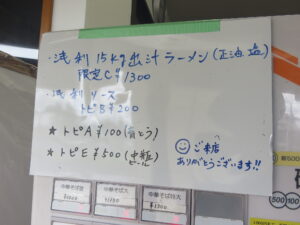 ・浅利15kg出汁ラーメン(正油,塩)
限定C¥1300
・浅利リース
トピB¥200
★トピA¥100(とう)
★トピE¥500(中瓶ビール)
ご来店
ありがとうございます!!
中華そば並
中華そば大
中華そば特大
¥1300
500
100